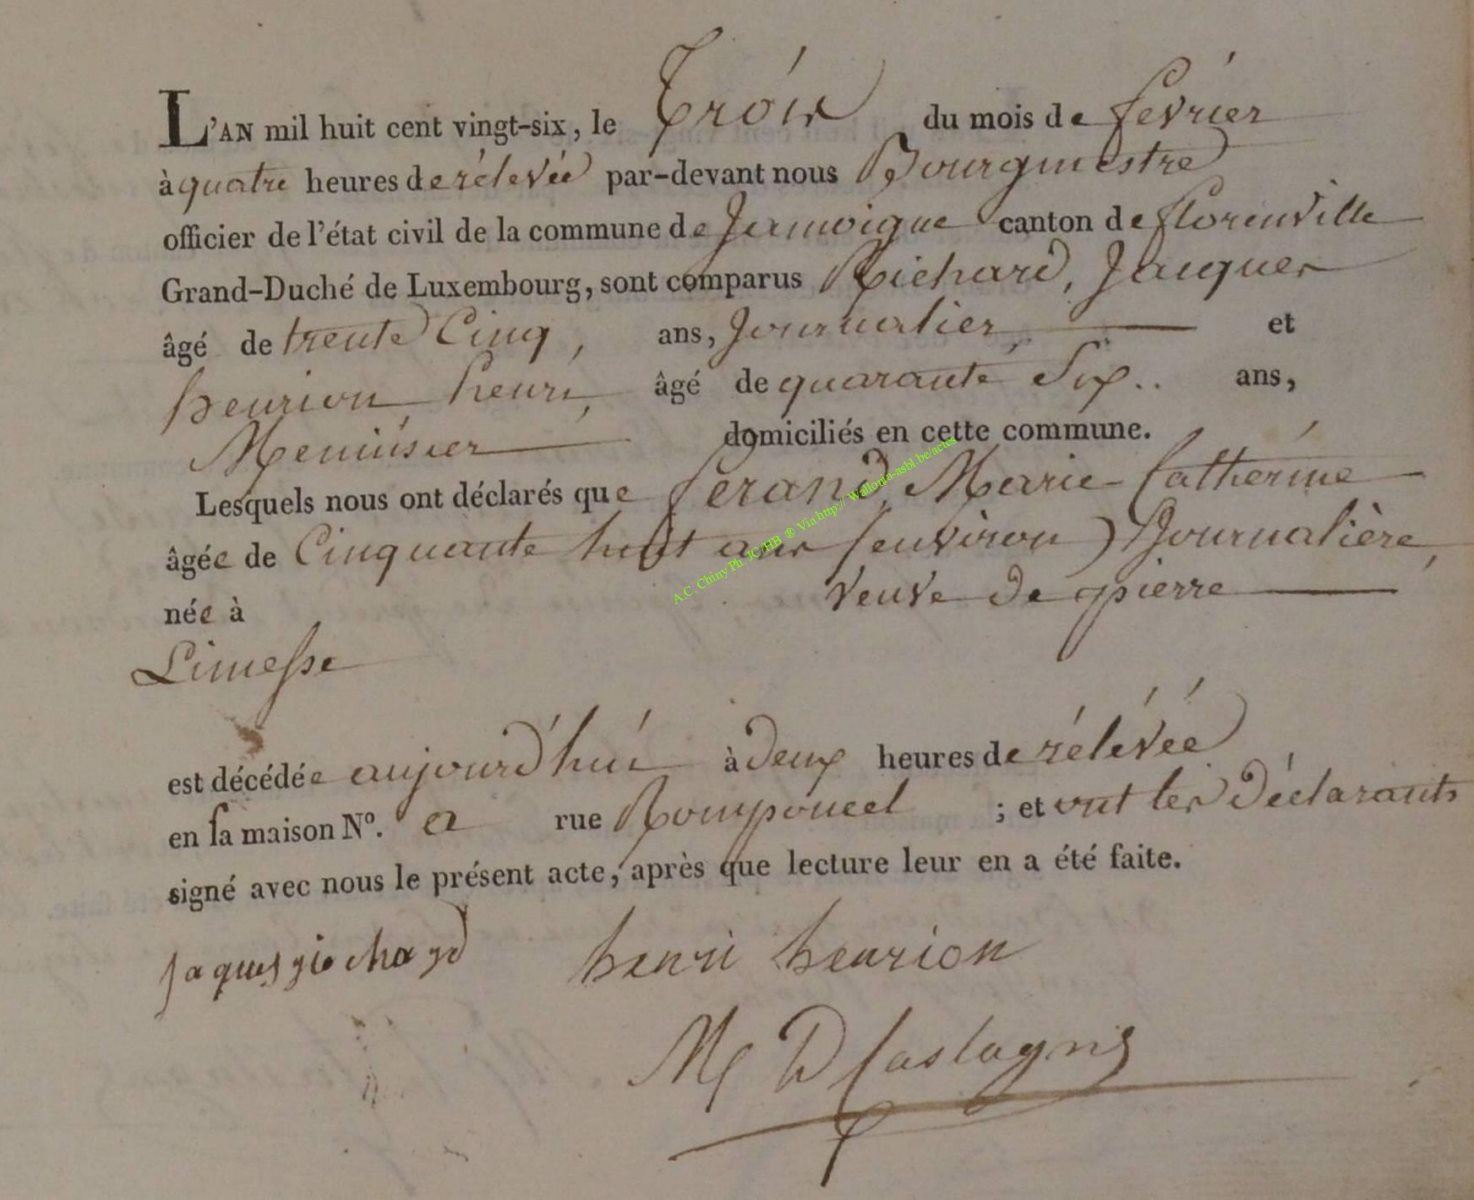 L'AN mil huit cent vingt-six, le Trois du mois de février
à quatre heures de rélevée par-devant nous Bourgmestre
officier de l'état civil de la commune de Jamoigne canton de florenville
Grand-Duché de Luxembourg, sont comparus Richard, Jacques
âgé de trente Cinq, ans, Journalier et
henrion, henri, âgé de quarante Six.. ans,
Menuisier domiciliés en cette commune.
Lesquels nous ont déclarés que Perand, Marie Catherine
âgée de Cinquante huit ans (environ) Journalière,
née à veuve de pierre
Limesse
est décédée aujourd'hui à deux heures de rélévée
en sa maison N°. a rue Rompoucel ; et ont les déclarants
signé avec nous le présent acte, après que lecture leur en a été faite.
jaques richard henri henrion
M D Castagne
A.C. Chiny Ph. JC HB ® Via http:// Wallonia-asbl.be/actes